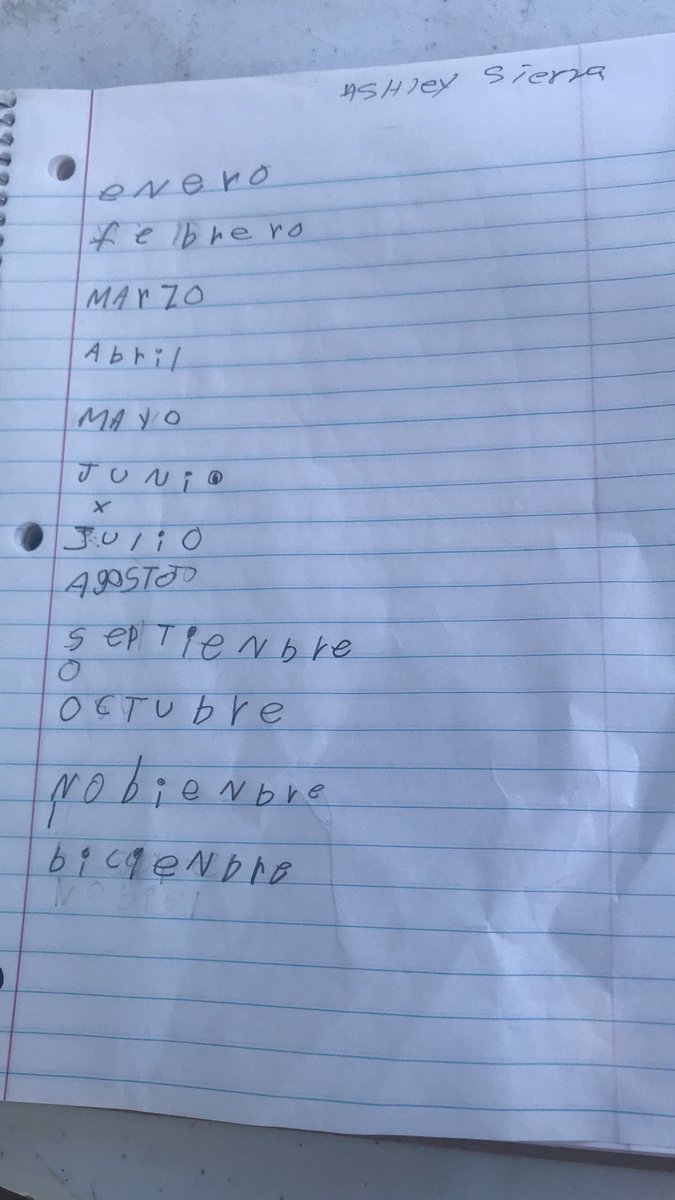 ASHley Sierra
eNero
febrero
MArzO
Abril
MAYO
JUNiO
x
JUliO
AgOSTO
SepTieNbre
O
OCTUbre
NObieNbre
bicieNbre